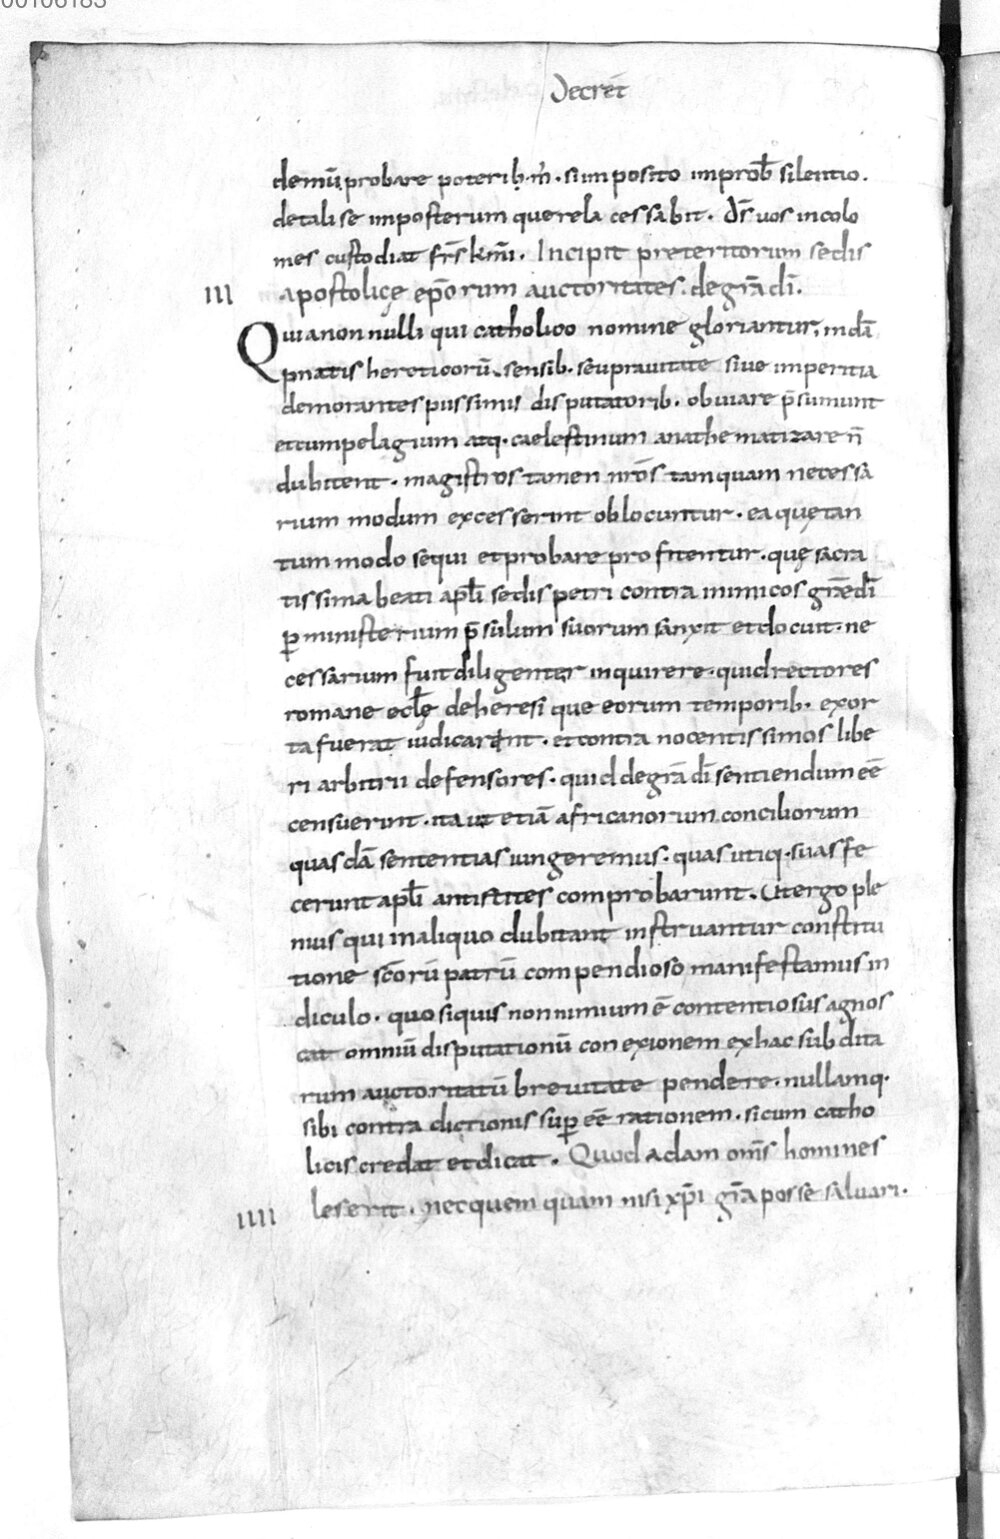 00106183
Decret̄
demū probare poterib; m̄. si imposito improb̄ silentio.
detali se imposterum querela cessabit. d̄s uos incolo
mes custodiat frs̄ km̄i. Incipit preteritorum sedis
III apostolicę ep̄orum auctoritates. degr̄a dī.
Quia non nulli qui catholico nomine gloriantur, in dā
pnatis hereticorū. sensib. seu prauitate siue imperitia
demorantes piissimis disputatorib. obuiare p̄sumunt
et cum pelagium atq. caelestinum anathematizare n̄
dubitent. magistros tamen nr̄os tamquam necessa
rium modum excesserint oblocuntur. ea quę tan
tum modo sequi et probare profitentur. quę sacra
tissima beati apl̄i sedis petri contra inimicos gr̄ae dī
p̱ ministerium p̄sulum suorum sanxit et docuit. ne
cessarium fuit diligenter inquirere. quid rectores
romane eclę̄ de heresi que eorum temporib. exor
ta fuerat iudicarent. et contra nocentissimos libe
ri arbitrii defensores. quid degr̄a dī sentiendum eē
censuerint. ita ut etiā africanorum conciliorum
quasdā sententias iungeremus. quas utiq. suas fe
cerunt apl̄i antistites comprobarunt. Ut ergo ple
nius qui in aliquo dubitant instruantur constitu
tione sc̄orū patrū compendioso manifestamus in
diculo. quo siquis non nimium ē contentiosus agnos
cat omniū disputationū conexionem ex hac subdita
rum auctoritatū breuitate pendere. nullamq.
sibi contra dictionis sup̱ eē rationem. si cum catho
licis credat et dicat. Quod adam om̄s homines
IIII leserit. nec quem quam nisi xp̄i gr̄a posse saluari.